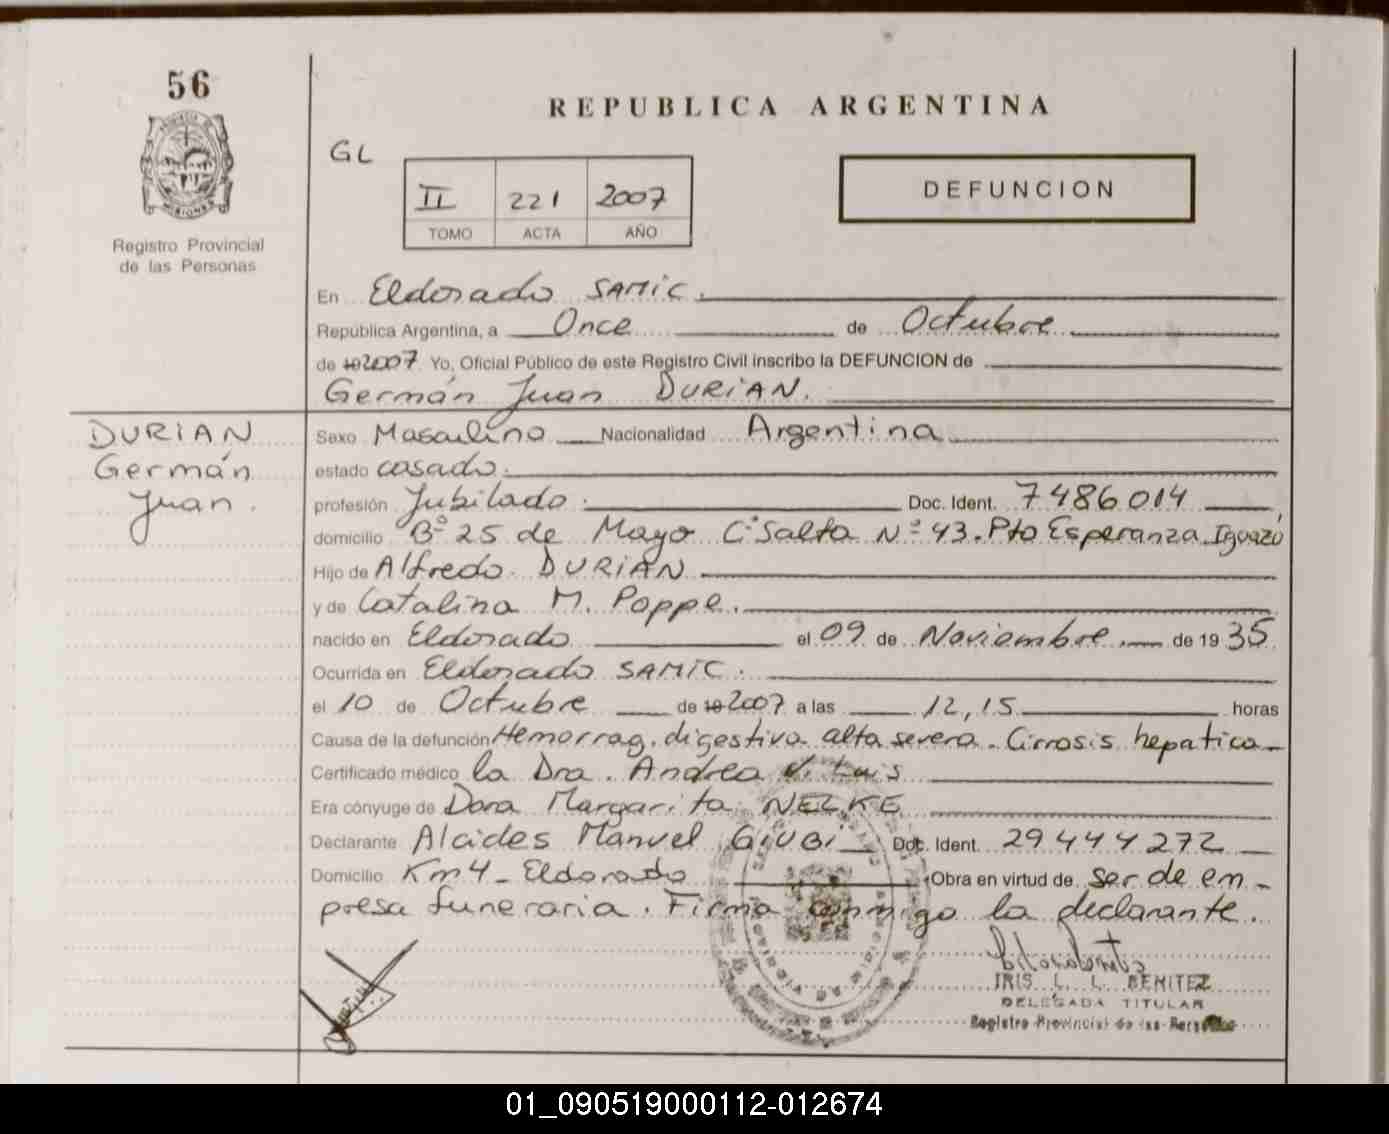 56
REPUBLICA ARGENTINA
GL
II 221 2007
TOMO ACTA AÑO
DEFUNCION
Registro Provincial
de las Personas
En Eldorado SAMIC.
República Argentina, a Once de Octubre
de 192007 Yo, Oficial Público de este Registro Civil inscribo la DEFUNCION de
Germán Juan DURIAN.
DURIAN
Germán
Juan.
Sexo Masculino Nacionalidad Argentina
estado casado.
profesión Jubilado. Doc. Ident. 7486014
domicilio Bº 25 de Mayo Cº Salta Nº 43. Pto Esperanza Iguazú
Hijo de Alfredo DURIAN
y de Catalina M. Poppe.
nacido en Eldorado el 09 de Noviembre de 1935
Ocurrida en Eldorado SAMIC.
el 10 de Octubre de 192007 a las 12,15 horas
Causa de la defunción Hemorrag. digestiva alta severa. Cirrosis hepatica
Certificado médico la Dra. Andrea V. Luis
Era cónyuge de Dora Margarita NELKE
Declarante Alcides Manuel GIUBI Doc. Ident. 29444272
Domicilio Km 4 - Eldorado Obra en virtud de ser de em-
presa funeraria. Firma conmigo la declarante.
IRIS L. L. BENITEZ
DELEGADA TITULAR
Registro Provincial de las Personas
01_090519000112-012674